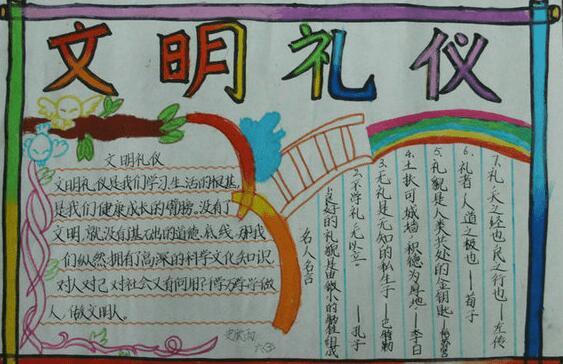 文明礼仪
文明礼仪
文明礼仪是我们学习、生活的根基,
是我们健康成长的臂膀。没有了
文明,就没有基础的道德底线。那我
们纵然拥有高深的科学文化知识,
对人对己对社会又有何用?千学万学学做
人,做文明人。
名人名言
1.良好的礼貌是由微小的牺牲组成
2.不学礼,无以立。——孔子
3.无礼是无知的私生子——巴特勒
4.土扶可城墙,积德为厚地。——李白
5.礼貌是人类共处的金钥匙——
6.礼者,人道之极也——荀子
7.礼,天之经也,民之行也——左传